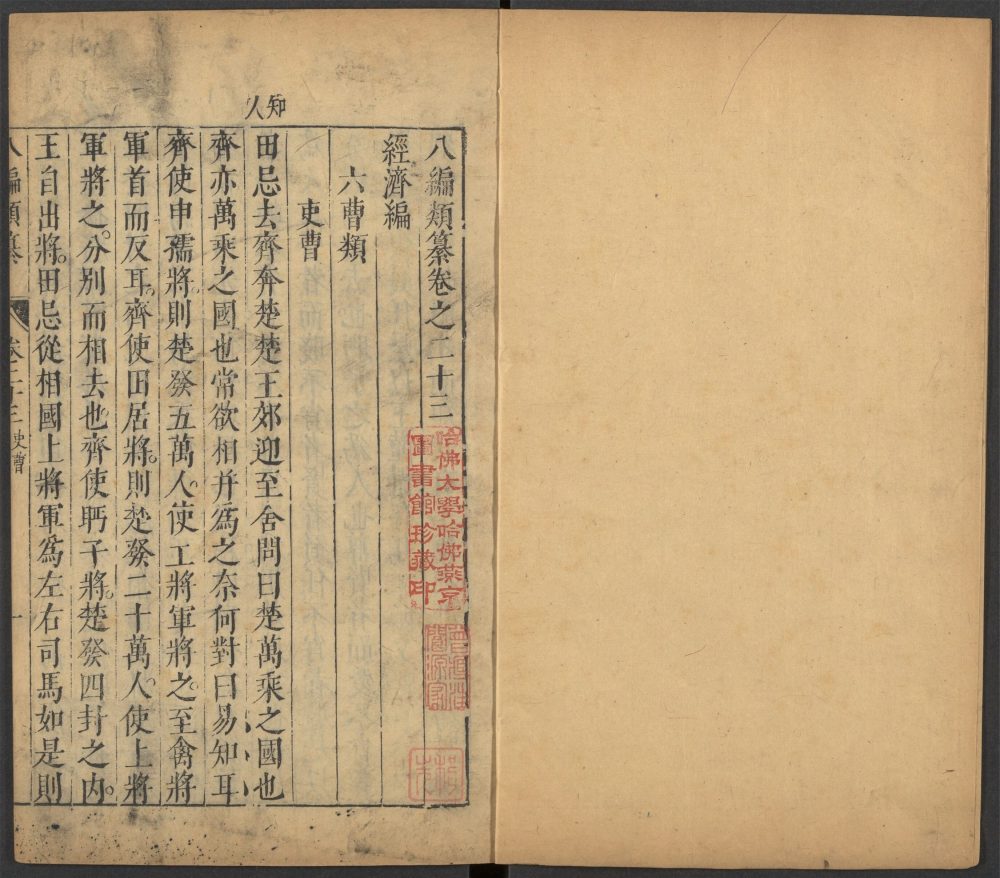 八編類纂卷之二十三
經濟編
六曹類
吏曹
知人
田忌去齊奔楚楚王郊迎至舍問曰楚萬乘之國也
齊亦萬乘之國也常欲相幷爲之奈何對曰易知耳
齊使申孺將則楚發五萬人使上將軍將之至禽將
軍首而反耳齊使田居將則楚發二十萬人使上將
軍將之分別而相去也齊使眄子將楚發四封之內
王自出將田忌從相國上將軍爲左右司馬如是則
八編類纂 卷二十三吏曹 一
哈佛大學哈佛燕京
圖書館珍藏印